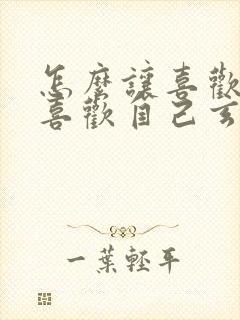 怎麼讓喜歡
喜歡自己
一葉輕平